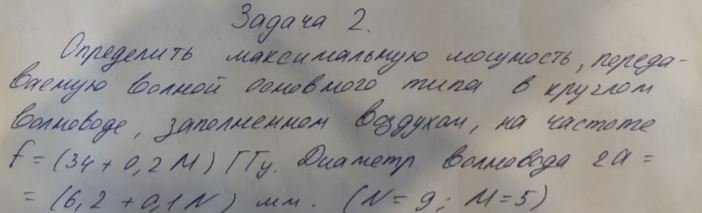 Задача 2.
Определить максимальную мощность, переда-
ваемую волной основного типа в круглом
волноводе, заполненном воздухом, на частоте
f = (34 + 0,2 M) ГГц. Диаметр волновода 2a =
= (6,2 + 0,1 N) мм. (N = 9; M = 5)